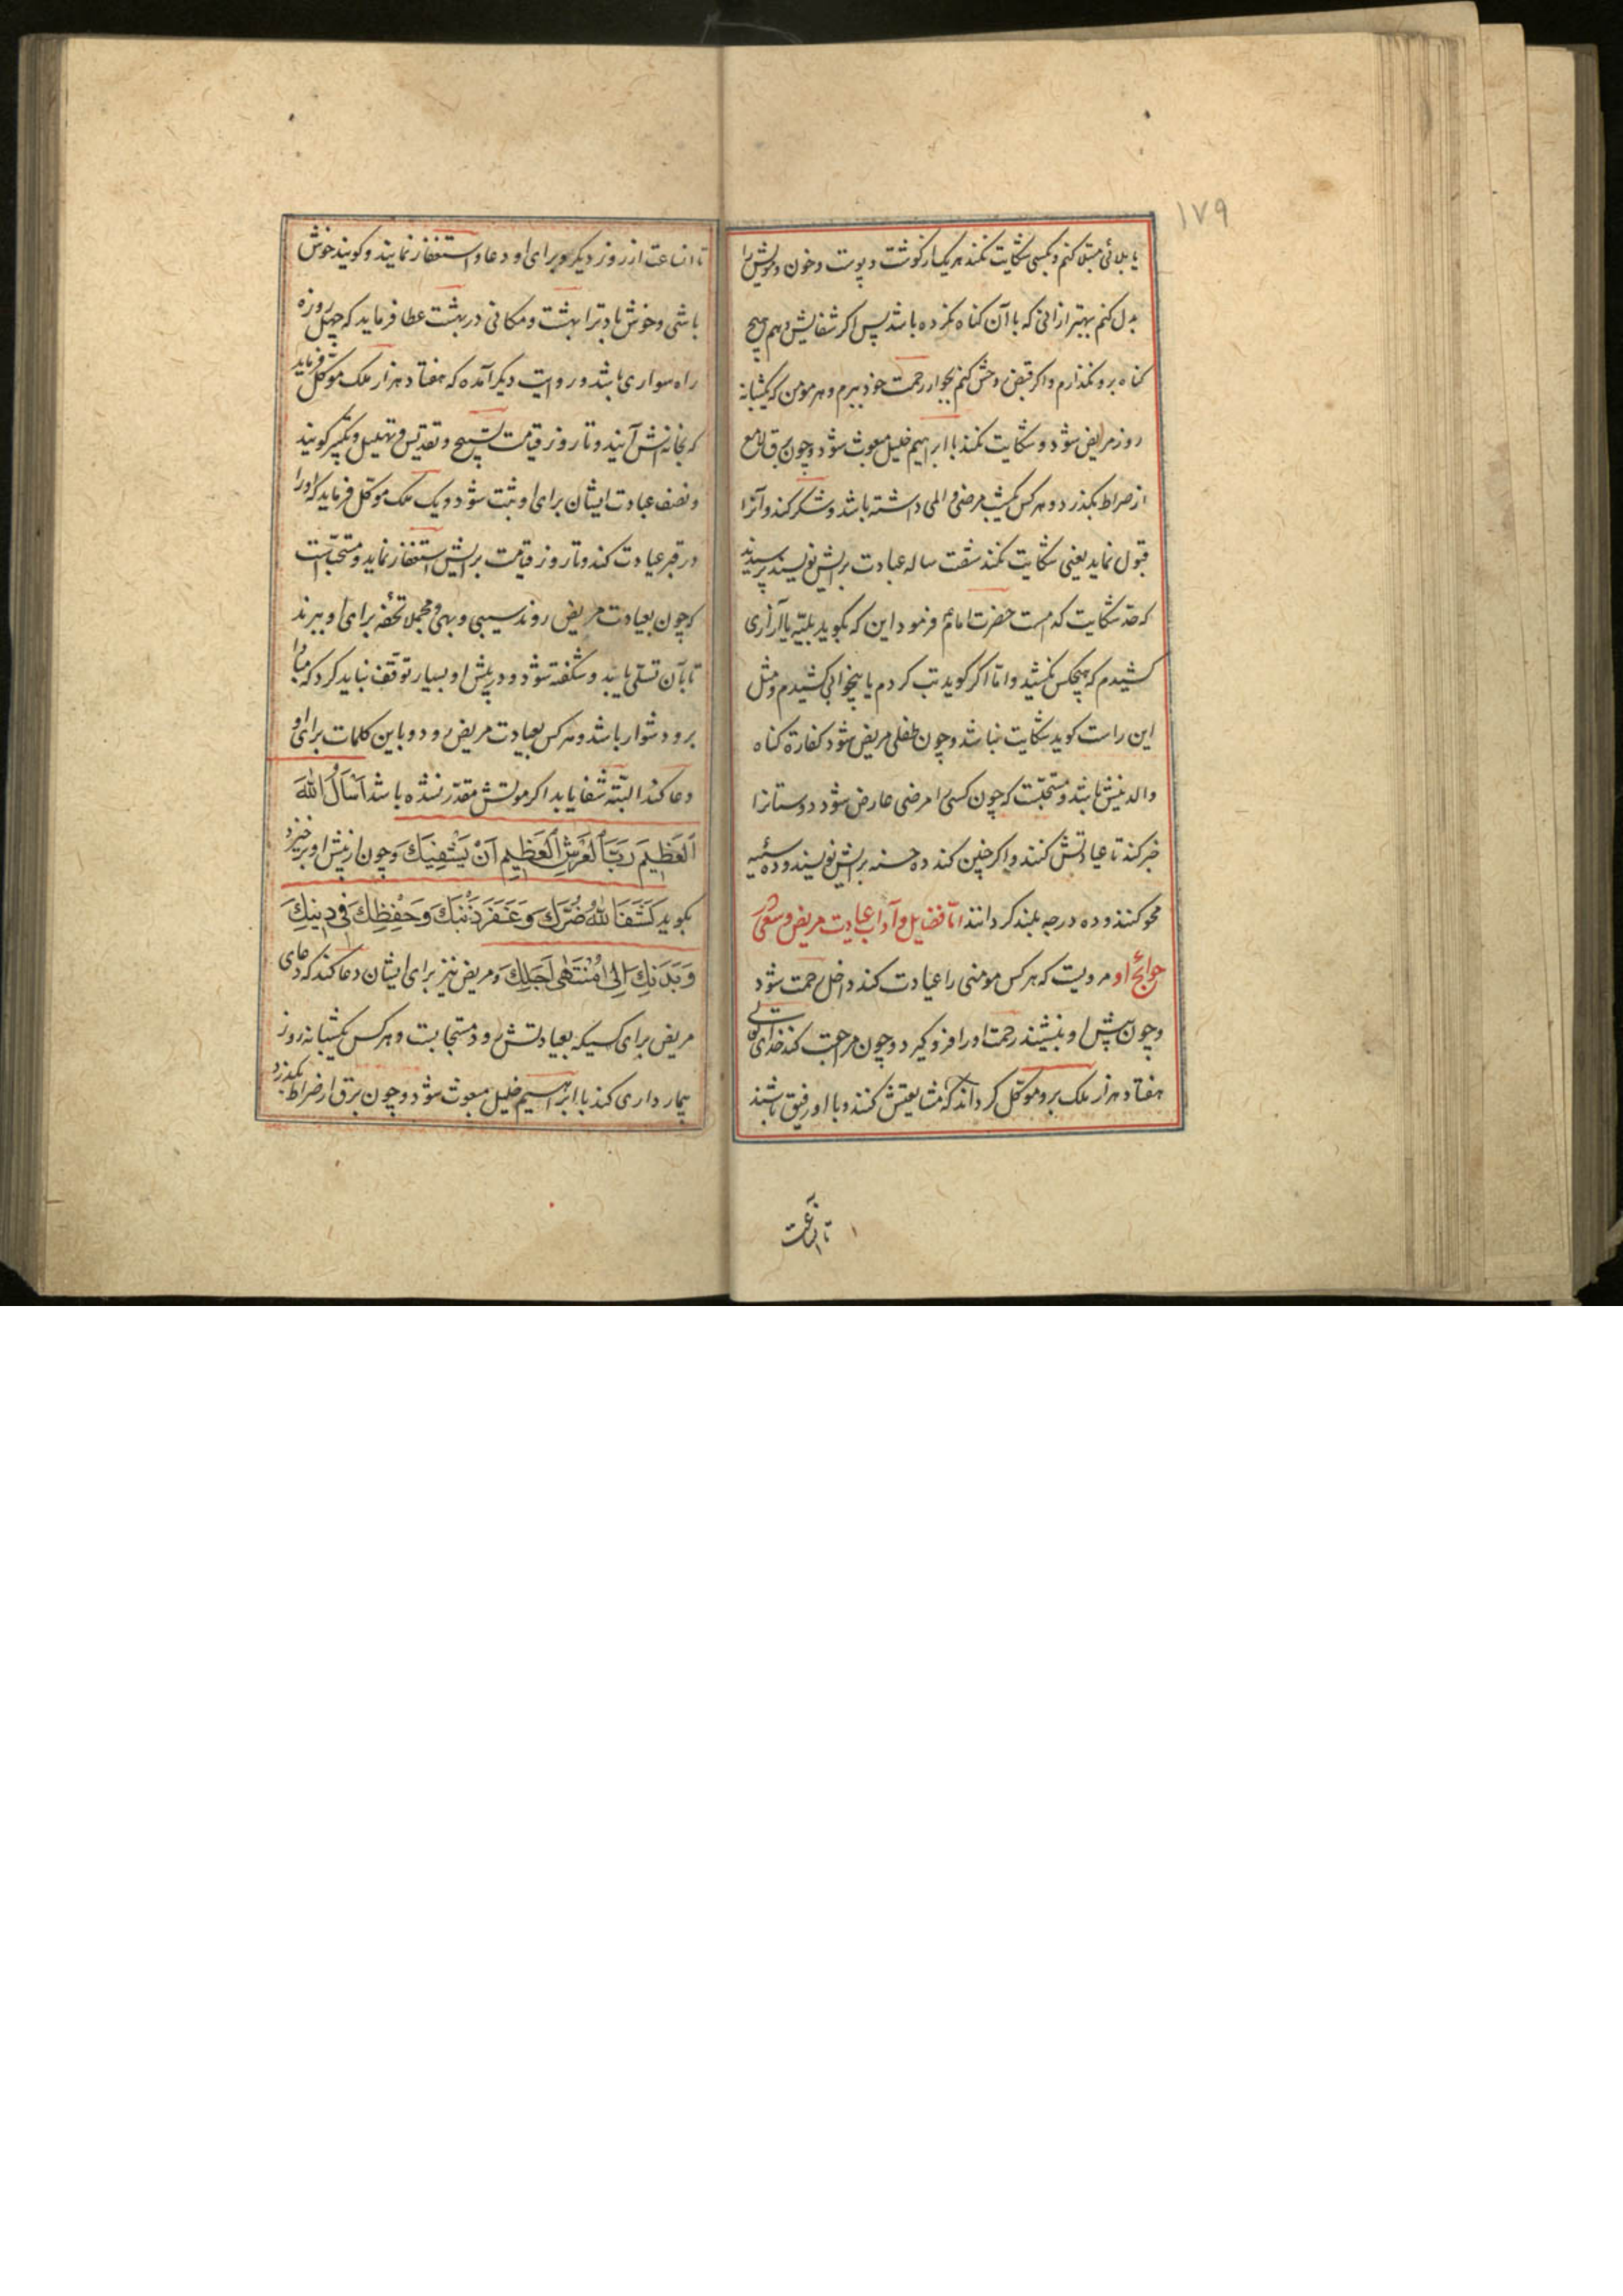 ١٧٩
یا بلائی مبتلا کنم و بکسی شکایت نکند هر یک از گوشت و پوست و خون و مویش را
بدل کنم بهتر ازانی که با آن گناه نکرده باشد پس اگر شفایش دهم هیچ
گناه برو نگذارم و اگر قبض روحش کنم بجوار رحمت خود برم و هر مومن که یکشبانه
روز مریض شود و شکایت نکند با ابراهیم خلیل مبعوث شود و چون برق لامع
از صراط بگذرد و هر کس یکشب مرضی و المی داشته باشد و شکر کند و آنرا
قبول نماید یعنی شکایت نکند شصت ساله عبادت برایش نویسند پرسیدند
که حد شکایت کدامست حضرت امام فرمود این که بگوید بلیه یا آزاری
کشیدم که هیچکس نکشید و اما اگر گوید تب کردم یا بیخوابی کشیدم و مثل
این راست گوید شکایت نباشد و چون طفلی مریض شود کفارة گناه
والدینش باشد و مستحبست که چون کسی را مرضی عارض شود دوستانرا
خبر کند تا عیادتش کنند و اگر چنین کند ده حسنه برایش نویسند و ده سیئه
محو کنند و ده درجه بلند گردانند اما فضایل و آداب عیادت مریض و سعی در
حوائج او مرویست که هر کس مومنی را عیادت کند داخل رحمت شود
و چون پیش او بنشیند رحمت او را فرو گیرد و چون مراجعت کند خدای تعالی
هفتاد هزار ملک برو موکل گرداند که مشایعتش کنند و با او رفیق باشند
تا انساعت
تا انساعت از روز دیگر و برای او دعا و استغفار نمایند و گویند خوش
باشی و خوش باد ترا بهشت و مکانی در بهشت عطا فرماید که چهل روزه
راه سواری باشد و در روایت دیگر آمده که هفتاد هزار ملک موکل فرماید
که بخانه‌اش آیند و تا روز قیامت تسبیح و تقدیس و تهلیل و تکبیر گویند
و نصف عبادت ایشان برای او ثبت شود و یک ملک موکل فرماید که او را
در قبر عیادت کند و تا روز قیامت برایش استغفار نماید و مستحبست
که چون بعیادت مریض روند سیبی و بهی و مجملا تحفه برای او ببرند
تا بآن تسلی یابد و شگفته شود و در پیش او بسیار توقف نباید کرد که مبادا
برو دشوار باشد و هر کس بعیادت مریض رود و باین کلمات برای او
دعا کند البته شفا یابد اگر موتش مقدر نشده باشد اَسْأَلُ اللهَ
الْعَظِیمَ رَبَّ الْعَرْشِ الْعَظِیمِ اَنْ یَشْفِیَكَ و چون از پیش او برخیزد
بگوید كَشَفَ اللهُ ضُرَّكَ وَ غَفَرَ ذَنْبَكَ وَ حَفِظَكَ فِی دِینِكَ
وَ بَدَنِكَ اِلیٰ مُنْتَهَی اَجَلِكَ و مریض نیز برای ایشان دعا کند که دعای
مریض برای کسیکه بعیادتش رود مستجابست و هر کس یکشبانه روز
بیمار داری کند با ابراهیم خلیل مبعوث شود و چون برق از صراط بگذرد